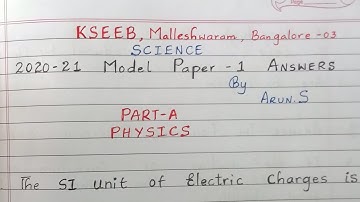 KSEEB, Malleshwaram, Bangalore-03
SCIENCE
2020-21 Model Paper-1 ANSWERS
By
ARUN.S
PART-A
PHYSICS
The SI unit of Electric Charges is